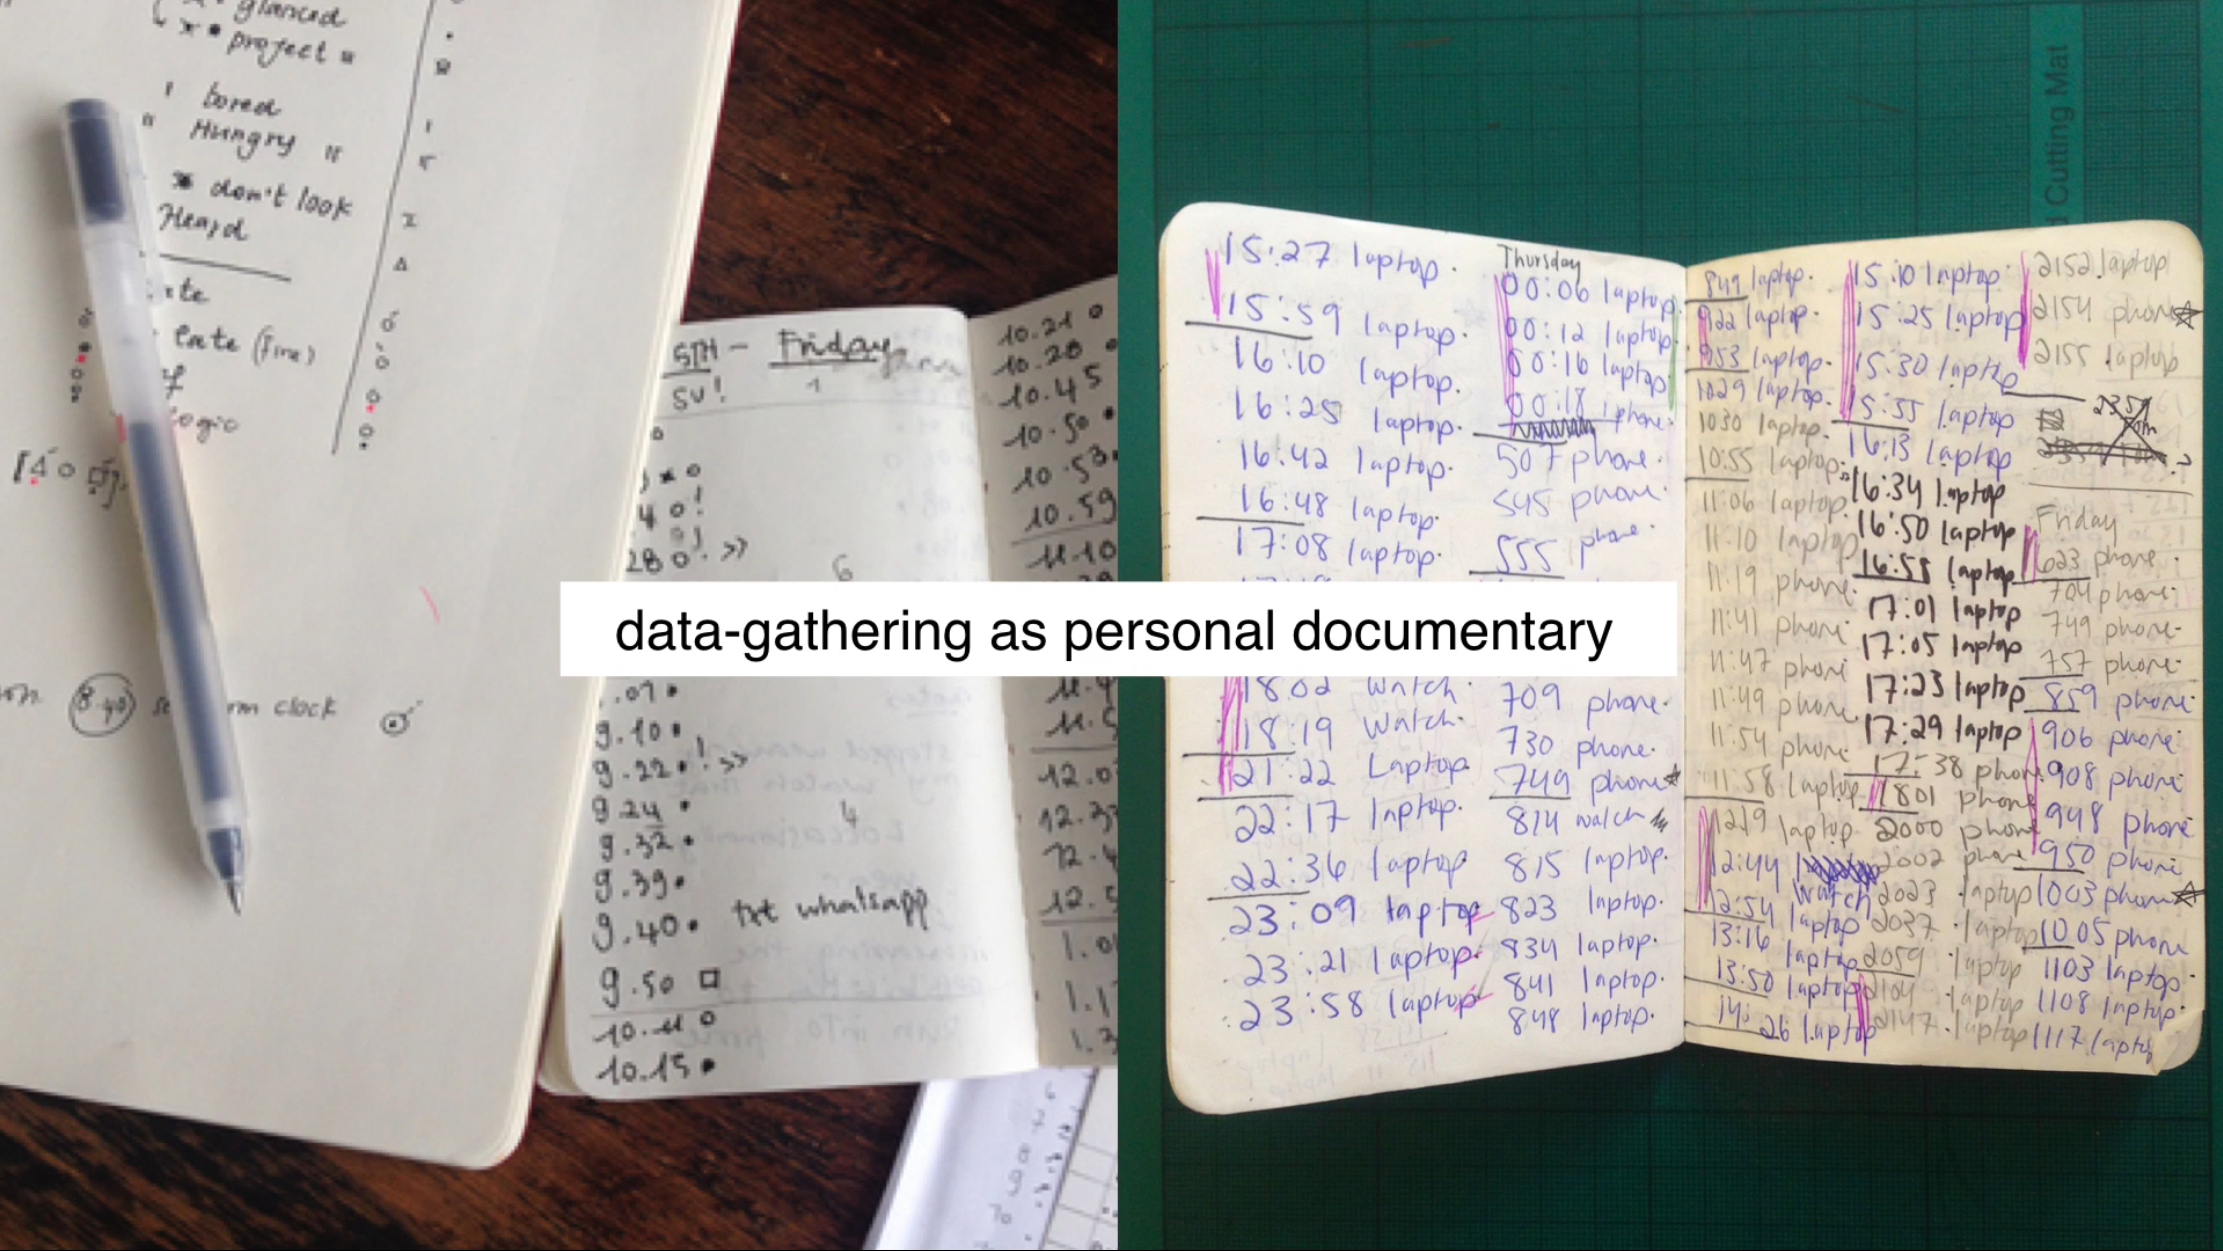 glanced
x • project
bored
Hungry "
don't look
Heard
late (fine)
Logic
8.40
clock
5TH - Friday
SU!
6
.07 •
9.10 •
9.22 • ! >>
9.24 •
4
9.32 •
9.39 •
9.40 • txt whatsapp
9.50 □
10.11 o
10.15 •
10.21 o
10.28 •
10.45
10.50 •
10.53
10.59
11.10
data-gathering as personal documentary
d Cutting Mat
15:27 laptop.
15:59 laptop.
16:10 laptop.
16:25 laptop.
16:42 laptop.
16:48 laptop.
17:08 laptop.
18:02 Watch.
18:19 Watch.
21:22 Laptop
22:17 laptop.
22:36 laptop
23:09 laptop
23:21 laptop.
23:58 laptop
Thursday
00:06 laptop.
00:12 laptop.
00:16 laptop
00:18 phone.
507 phone.
545 phone.
555 phone.
709 phone.
730 phone.
749 phone
814 watch
815 laptop.
823 laptop.
834 laptop.
841 laptop.
848 laptop.
849 laptop.
922 laptop.
953 laptop.
1029 laptop.
1030 laptop.
10:55 laptop.
11:06 laptop.
11:10 laptop
11:19 phone.
11:41 phone
11:47 phone
11:49 phone.
11:54 phone
11:58 laptop
1219 laptop
12:44
Watch
12:54 laptop
13:16 laptop
13:50 laptop
14:26 laptop
15:10 laptop.
15:25 laptop
15:30 laptop
15:55 laptop
16:13 laptop
16:34 laptop
16:50 laptop
16:58 laptop
17:01 laptop
17:05 laptop
17:23 laptop
17:29 laptop
17:38 phone.
1801 phone
2000 phone
2002 phone
2023 laptop
2037 laptop
2059 laptop
2104 laptop
2147 laptop
2152 laptop
2154 phone
2155 laptop
Friday
623 phone.
704 phone.
749 phone.
757 phone.
859 phone.
906 phone.
908 phone
948 phone
950 phone
1003 phone
1005 phone
1103 laptop.
1108 laptop.
1117 laptop